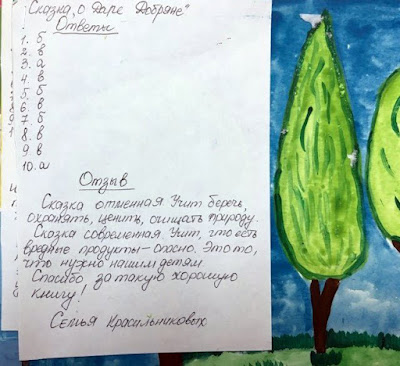 "Сказка, о Даре Добряне"
Ответы
1. б
2. в
3. а
4. в
5. б
6. в
7. б
8. в
9. в
10. а
Отзыв
Сказка отменная. Учит беречь,
охранять, ценить, очищать природу.
Сказка современная. Учит, что есть
вредные продукты – опасно. Это то,
что нужно нашим детям.
Спасибо, за такую хорошую
книгу!
Семья Красильниковых